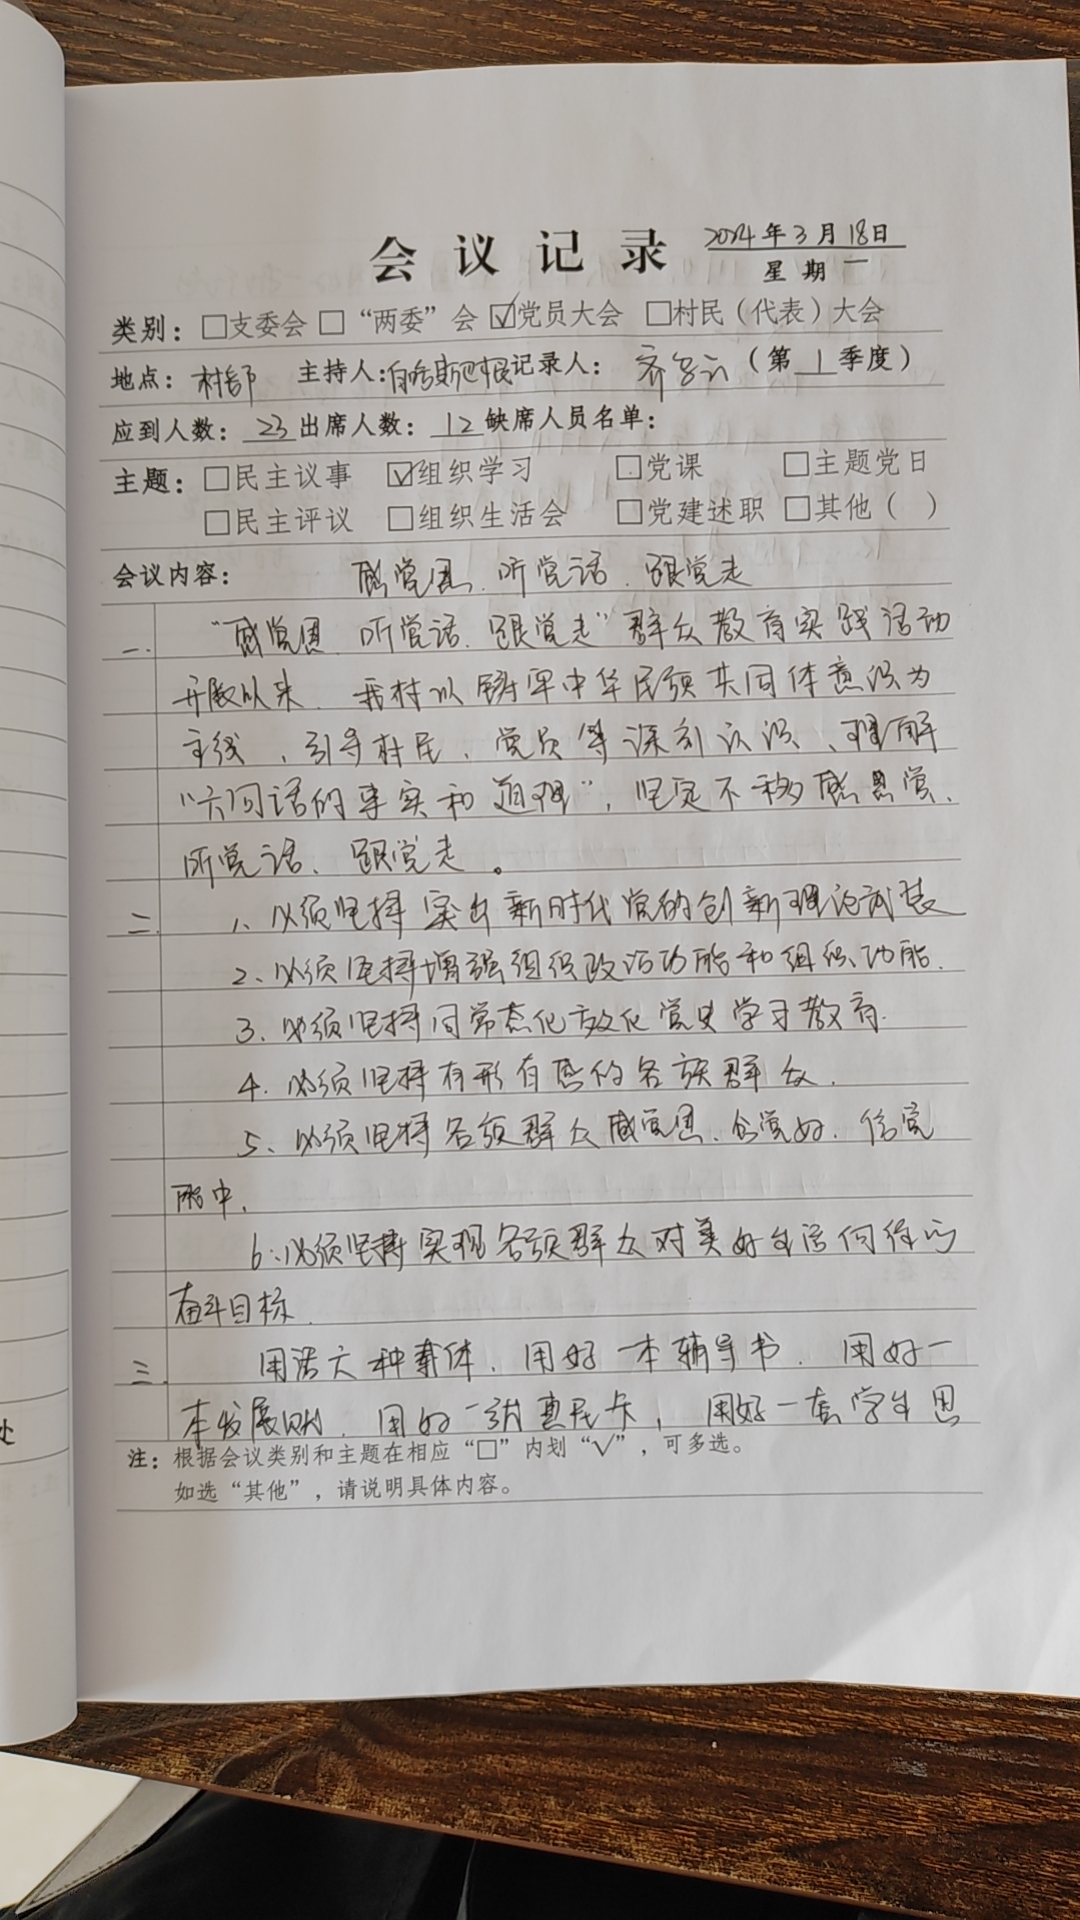 会议记录 2024年3月18日
星期一
类别：□支委会 □“两委”会 ☑党员大会 □村民（代表）大会
地点：村部 主持人：哈斯巴根 记录人：齐 （第1季度）
应到人数：23 出席人数：12 缺席人员名单：
主题：□民主议事 ☑组织学习 □党课 □主题党日
□民主评议 □组织生活会 □党建述职 □其他（ ）
会议内容： 感党恩、听党话、跟党走
一、“感党恩、听党话、跟党走”群众教育实践活动
开展以来、我村以铸牢中华民族共同体意识为
主线、引导村民、党员等深刻认识、理解
“六句话的事实和道理”，坚定不移感恩党、
听党话、跟党走。
二、1、必须坚持突出新时代党的创新理论武装
2、必须坚持增强组织政治功能和组织功能.
3、必须坚持同常态化 党史学习教育.
4、必须坚持有形有感的各族群众.
5、必须坚持各族群众感党恩、念党好、信党
中.
6、必须坚持实现各族群众对美好生活向往的
奋斗目标.
三、用活六种载体、用好一本辅导书、用好一
本发展 、用好一 惠民卡，用好一套学生思
注：根据会议类别和主题在相应“□”内划“√”，可多选。
如选“其他”，请说明具体内容。
处